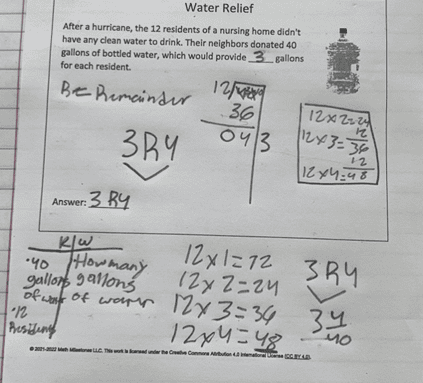 Water Relief
After a hurricane, the 12 residents of a nursing home didn't
have any clean water to drink. Their neighbors donated 40
gallons of bottled water, which would provide 3 gallons
for each resident.
R= Remainder
12
36
04 3
3R4
12x2=24
12
12x3=36
12
12x4=48
Answer: 3 R4
K/W
•40 How many
gallons gallons
of water of water
•12
Residents
12x1=12
12x2=24
12x3=36
12x4=48
3R4
3 4
40
© 2021-2022 Math Milestones LLC. This work is licensed under the Creative Commons Attribution 4.0 International License (CC BY 4.0).